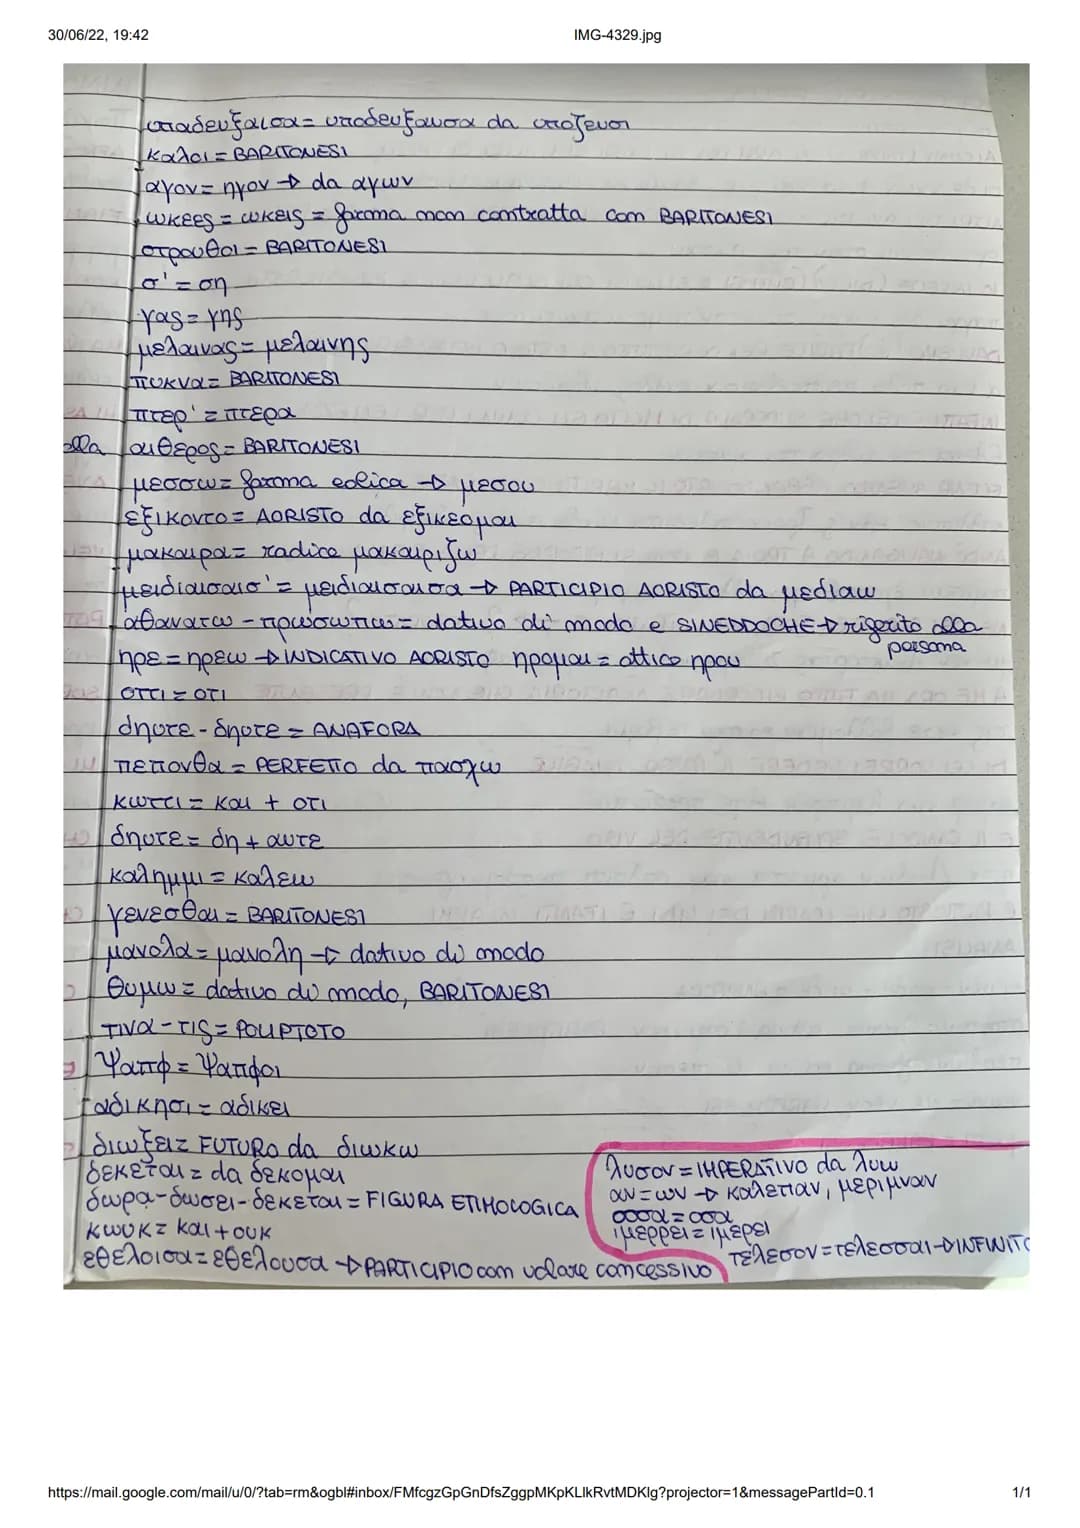 30/06/22, 19:42 IMG-4329.jpg
υπαδευξαισα= υποδευξαυσα da
καλοι = BARITONESI
αγον= ηγον → da αγων
ωκεες = ωκεις = forma non contratta con BARITONESI
στρουθοι = BARITONESI
σ' = ση
γας= γης
μελαινας= μελαινης
πυκνα= BARITONESI
πτερ' = πτερα
alla αιθερος= BARITONESI
μεσσω= forma eolica → μεσου
εξικοντο= AORISTO da εξικεομαι
μακαιρα= radice μακαιριζω
μειδιαισαισ' = μειδιαισαισα → PARTICIPIO AORISTO da μεδιαω
αθανατω - προσωπω= dativo di modo e SINEDDOCHE→ riferito alla persona
ηρε = ηρεω → INDICATIVO AORISTO ηρομαι = attico ηρου
οττι = οτι
δηυτε - δηυτε = ANAFORA
πεπονθα = PERFETTO da πασχω
κωττι = και + οτι
δηυτε= δη + αυτε
καλημμι = καλεω
γενεσθαι = BARITONESI
μαινολα= μαινολη → dativo di modo
θυμω = dativo di modo, BARITONESI
τινα - τις = POLIPTOTO
Ψαπφ = Ψαπφοι
αδικησι = αδικει
διωξει= FUTURO da διωκω
δεκεται = da δεκομαι
δωρα-δωσει-δεκεται = FIGURA ETIMOLOGICA
κωυκ= και + ουκ
εθελοισα=εθελουσα → PARTICIPIO con valore concessivo
λυσον = IMPERATIVO da λυω
αν = ων → καλεπαν, μεριμναν
οσσα = οσα
ιμερρει = ιμερει
τέλεσον = τέλεσσαι → INFINITO
https://mail.google.com/mail/u/0/?tab=rm&ogbl#inbox/FMfcgzGpGnDfsZggpMKpKLlkRvtMDKlg?projector=1&messagePartId=0.1 1/1